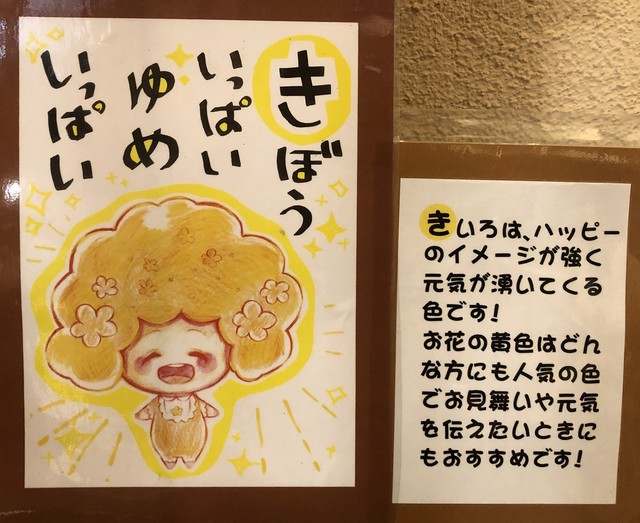 きぼう
いっぱい
ゆめ
いっぱい
きいろは、ハッピー
のイメージが強く
元気が湧いてくる
色です!
お花の黄色はどん
な方にも人気の色
でお見舞いや元気
を伝えたいときに
もおすすめです!